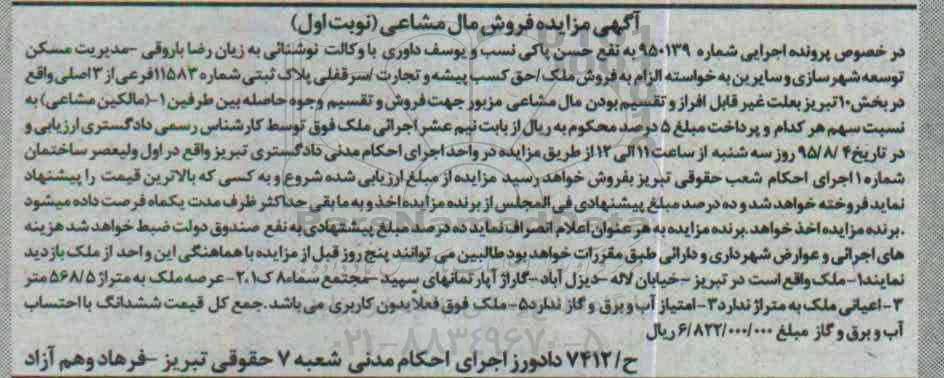 آگهی مزایده فروش مال مشاعی (نوبت اول)
در خصوص پرونده اجرایی شماره ۹۵۰۱۳۹ به نفع حسن پاکی نسب و یوسف داوری با وکالت نوشنائی به زیان رضا باروقی -مدیریت مسکن
توسعه شهر سازی و سایرین به خواسته الزام به فروش ملک /حق کسب پیشه و تجارت /سرقفلی پلاک ثبتی شماره ۱۱۵۸۳فرعی از ۳ اصلی واقع
در بخش۱۰تبریز بعلت غیر قابل افراز و تقسیم بودن مال مشاعی مزبور جهت فروش و تقسیم وجوه حاصله بین طرفین ۱-(مالکین مشاعی) به
نسبت سهم هر کدام و پرداخت مبلغ ۵ درصد محکوم به ریال از بابت نیم عشر اجرائی ملک فوق توسط کارشناس رسمی دادگستری ارزیابی و
در تاریخ۹۵/۸/۴ روز سه شنبه از ساعت۱۱الی ۱۲ از طریق مزایده در واحد اجرای احکام مدنی دادگستری تبریز واقع در اول ولیعصر ساختمان
شماره ۱ اجرای احکام شعب حقوقی تبریز بفروش خواهد رسید مزایده از مبلغ ارزیابی شده شروع و به کسی که بالاترین قیمت را پیشنهاد
نماید فروخته خواهد شد و ده درصد مبلغ پیشنهادی فی المجلس از برنده مزایده اخذ و به مابقی حداکثر ظرف مدت یکماه فرصت داده میشود
.برنده مزایده اخذ خواهد.برنده مزایده به هر عنوان اعلام انصراف نماید ده درصد مبلغ پیشنهادی به نفع صندوق دولت ضبط خواهد شد هزینه
های اجرائی و عوارض شهرداری و دارائی طبق مقررات خواهد بود طالبین می توانند پنج روز قبل از مزایده با هماهنگی این واحد از ملک بازدید
نمایند۱-ملک واقع است در تبریز -خیابان لاله-دیزل آباد-گاراژ آپارتمانهای سپید-مجتمع سما۸ ک۲،۱- عرصه ملک به متراژ ۵۶۸/۵ متر
۳-اعیانی ملک به متراژ ندارد۳-امتیاز آب و برق و گاز ندارد۵-ملک فوق فعلا بدون کاربری می باشد.جمع کل قیمت ششدانگ با احتساب
آب و برق و گاز مبلغ ۶/۸۲۲/۰۰۰/۰۰۰ریال
ح/۷۴۱۲ دادورز اجرای احکام مدنی شعبه ۷ حقوقی تبریز -فرهاد وهم آزاد
۰۲۱-۸۸۳۴۹۶۷۰-۵